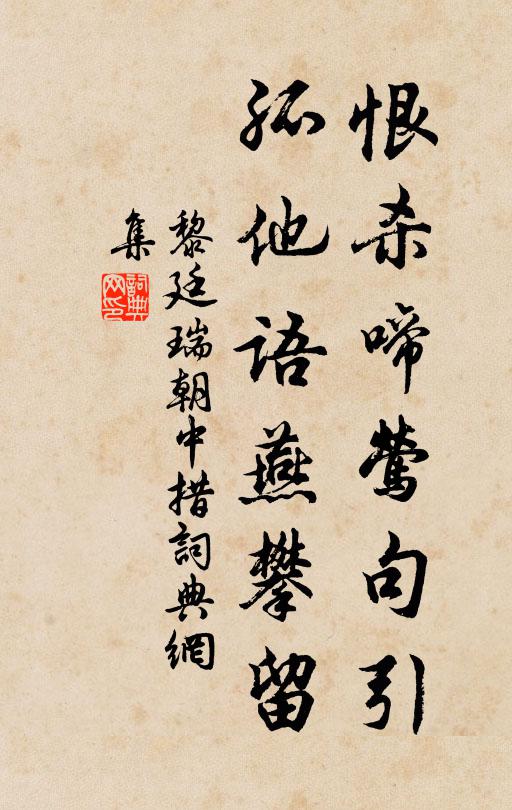 恨杀啼莺句引
孤他语燕攀留
黎廷瑞朝中措詞典網
集
詞典网印